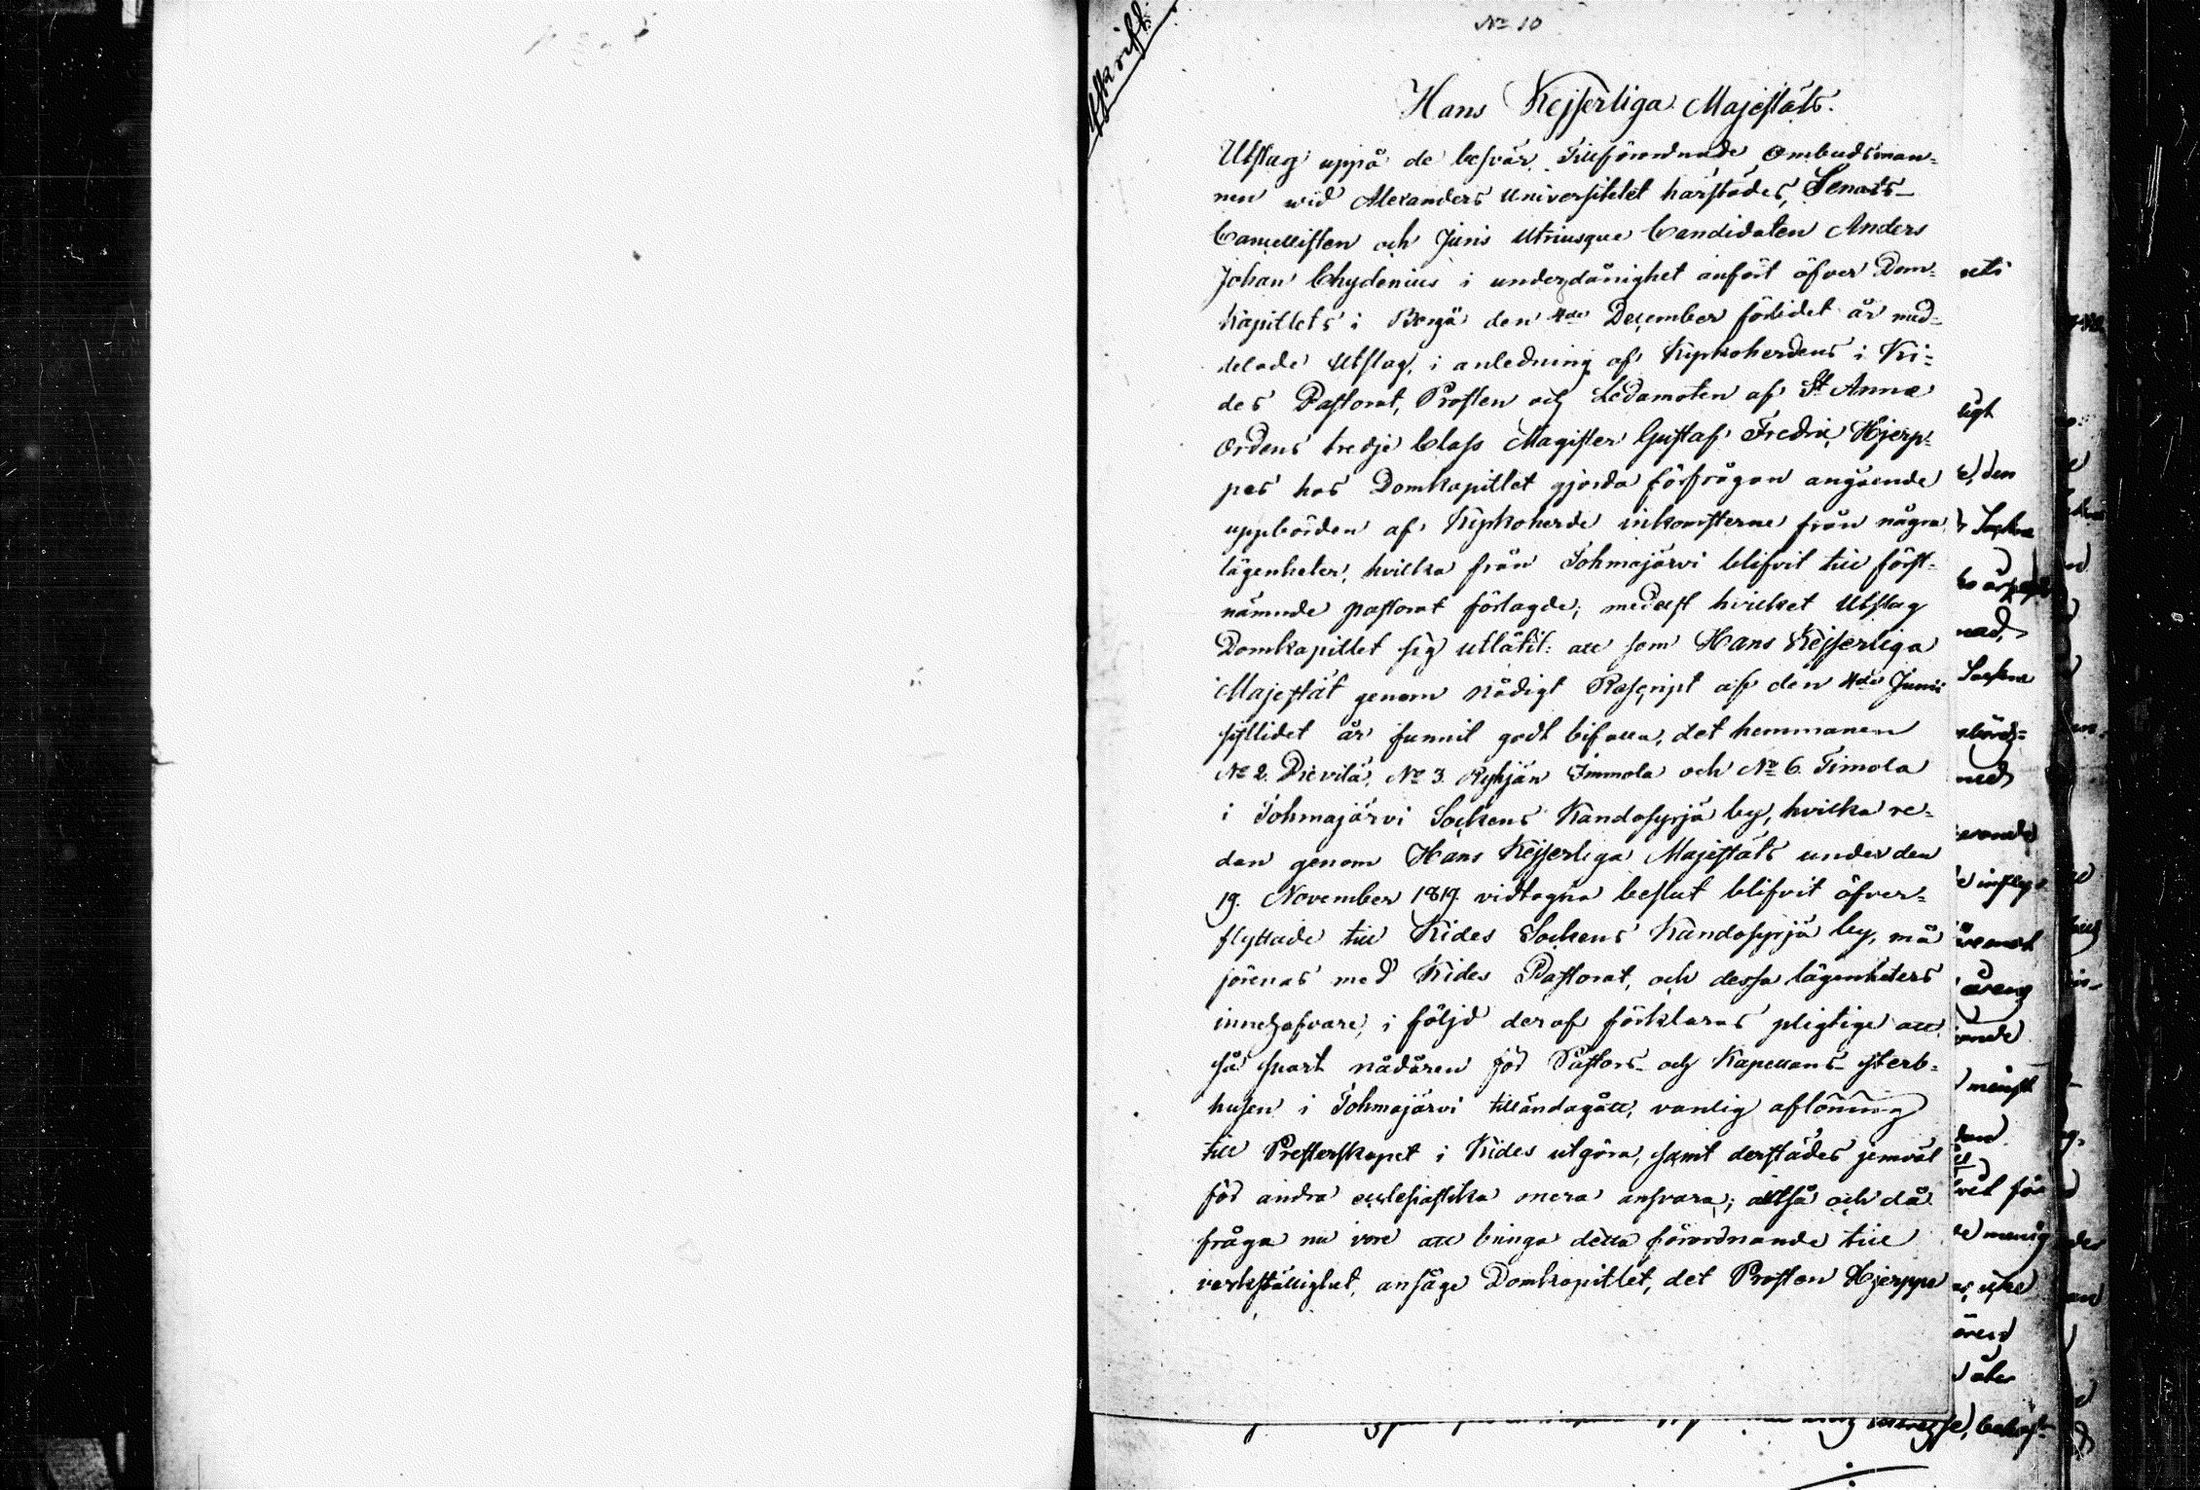 Afskrift.
No 10
Hans Kejserliga Majestäts.
Utslag uppå de besvär, Tillförordnade Ombudsman-
nen wid Alexanders Universitetet härstädes, Senats-
Cancellisten och Juris Utriusque Candidaten Anders
Johan Chydenius i underdånighet anfört öfver Dom-
kapitlets i Borgå den 4de December förlidet år med-
delade Utslag, i anledning af Kyrkoherdens i Ki-
des Pastorat, Prosten och Ledamoten af St Annæ
Ordens tredje Class Magister Gustaf Fredric Hjerp-
pes hos Domkapitlet gjorda förfrågan angående
uppbörden af Kyrkoherde inkomsterne från några
lägenheter, hvilka från Tohmajärvi blifvit till först-
nämnde pastorat förlagde; medelst hvilket Utslag
Domkapitlet sig utlåtit: att som Hans Kejserliga
Majestät genom nådigt Rescript af den 4de Junii
sistlidet år funnit godt bifalla, det hemmanen
No 2. Pievilä, No 3. Ryhjän Immola och No 6. Timola
i Tohmajärvi Sockens Kandosyrjä by, hvilka re-
dan genom Hans Kejserliga Majestäts under den
19. November 1819. vidtagna beslut blifvit öfver-
flyttade till Kides Sockens Kandosyrjä by, må
förenas med Kides Pastorat, och dessa lägenheters
innehafvare, i följd deraf förklaras pligtige att
så snart nådåren för Pastors- och Kapellans- sterb-
husen i Tohmajärvi tilländagått, vanlig aflöning
till Presterskapet i Kides utgöra, samt derstädes jemväl
för andra ecclesiastika onera ansvara; alltså och då
fråga nu vore att bringa detta förordnande till
verkställighet, ansåge Domkapitlet, det Prosten Hjerppe